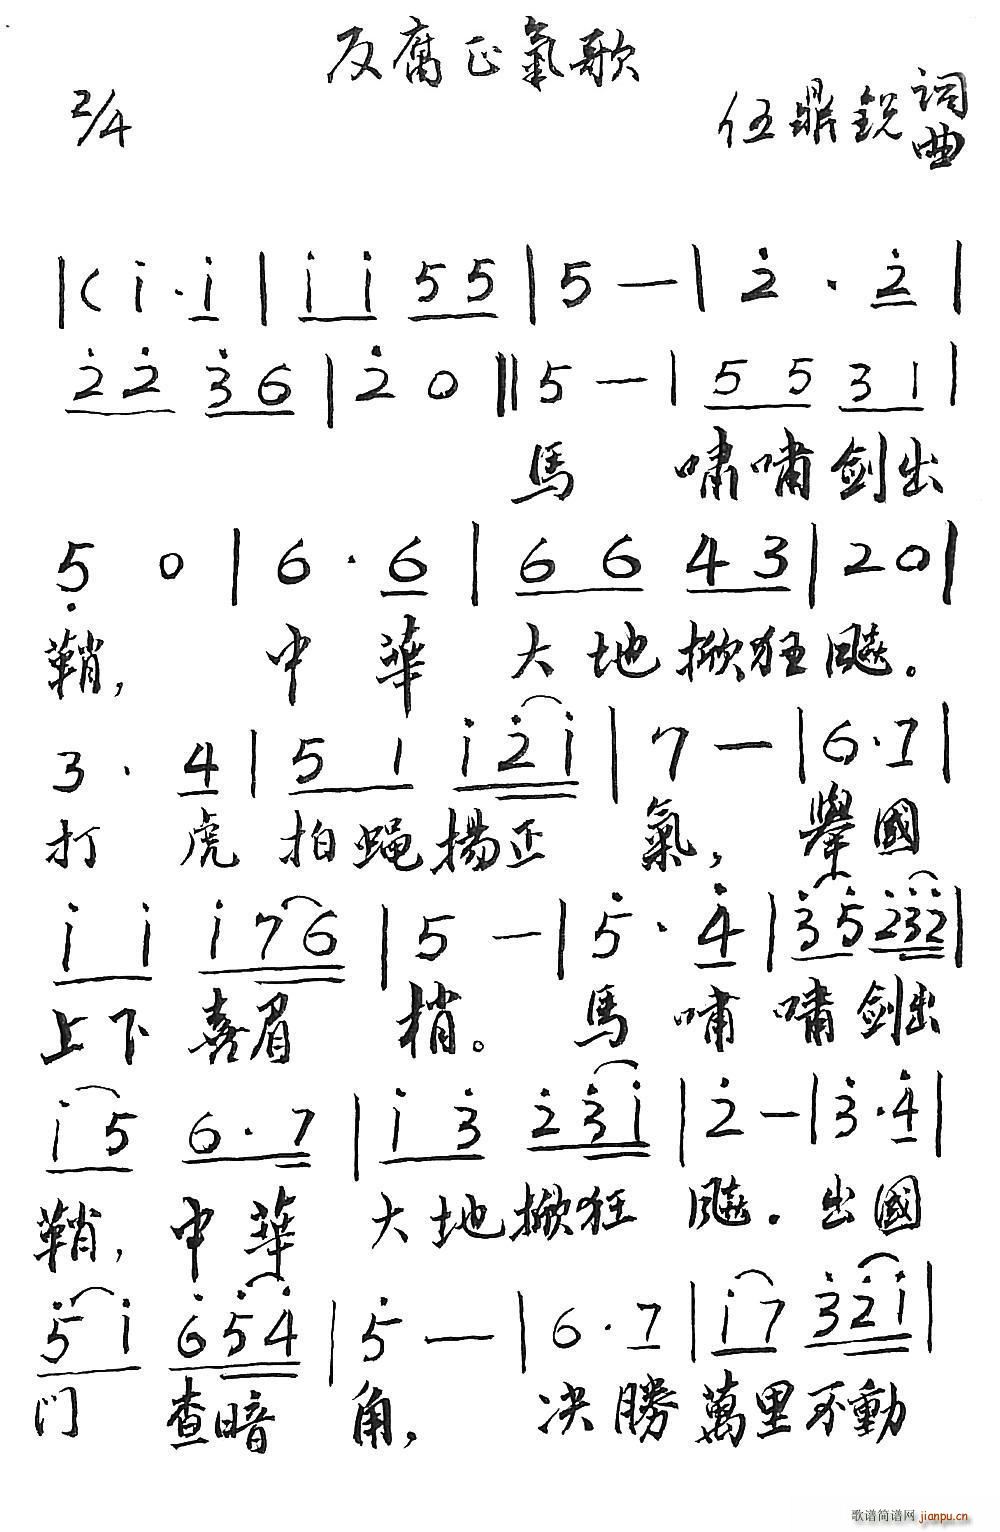 反腐正氣歌
2/4
伍鼎銳 詞曲
|( i · i | i i 5 5 | 5 — | 2̇ · 2̇ |
2̇ 2̇ 3̇ 6 | 2̇ 0 || 5 — | 5 5 3 1 |
馬 嘯嘯劍出
5̣ 0 | 6 · 6 | 6 6 4 3 | 2 0 |
鞘, 中華 大地掀狂飈。
3 · 4 | 5 1 i 2̇ i | 7 — | 6 · 7 |
打虎拍蝇揚正氣, 舉國
i i i 7 6 | 5 — | 5̇ · 4̇ | 3̇ 5̇ 2̇ 3̇ 2̇ |
上下喜眉梢。 馬嘯嘯劍出
i 5 6 · 7 | i 3̇ 2̇ 3̇ i | 2̇ — | 3̇ · 4̇ |
鞘, 中華 大地掀狂飈. 出國
5̇ i 6̇ 5̇ 4̇ | 5̇ — | 6 · 7 | i 7 3̇ 2̇ i |
门查暗角, 决勝萬里不動
歌谱简谱网 jianpu.cn